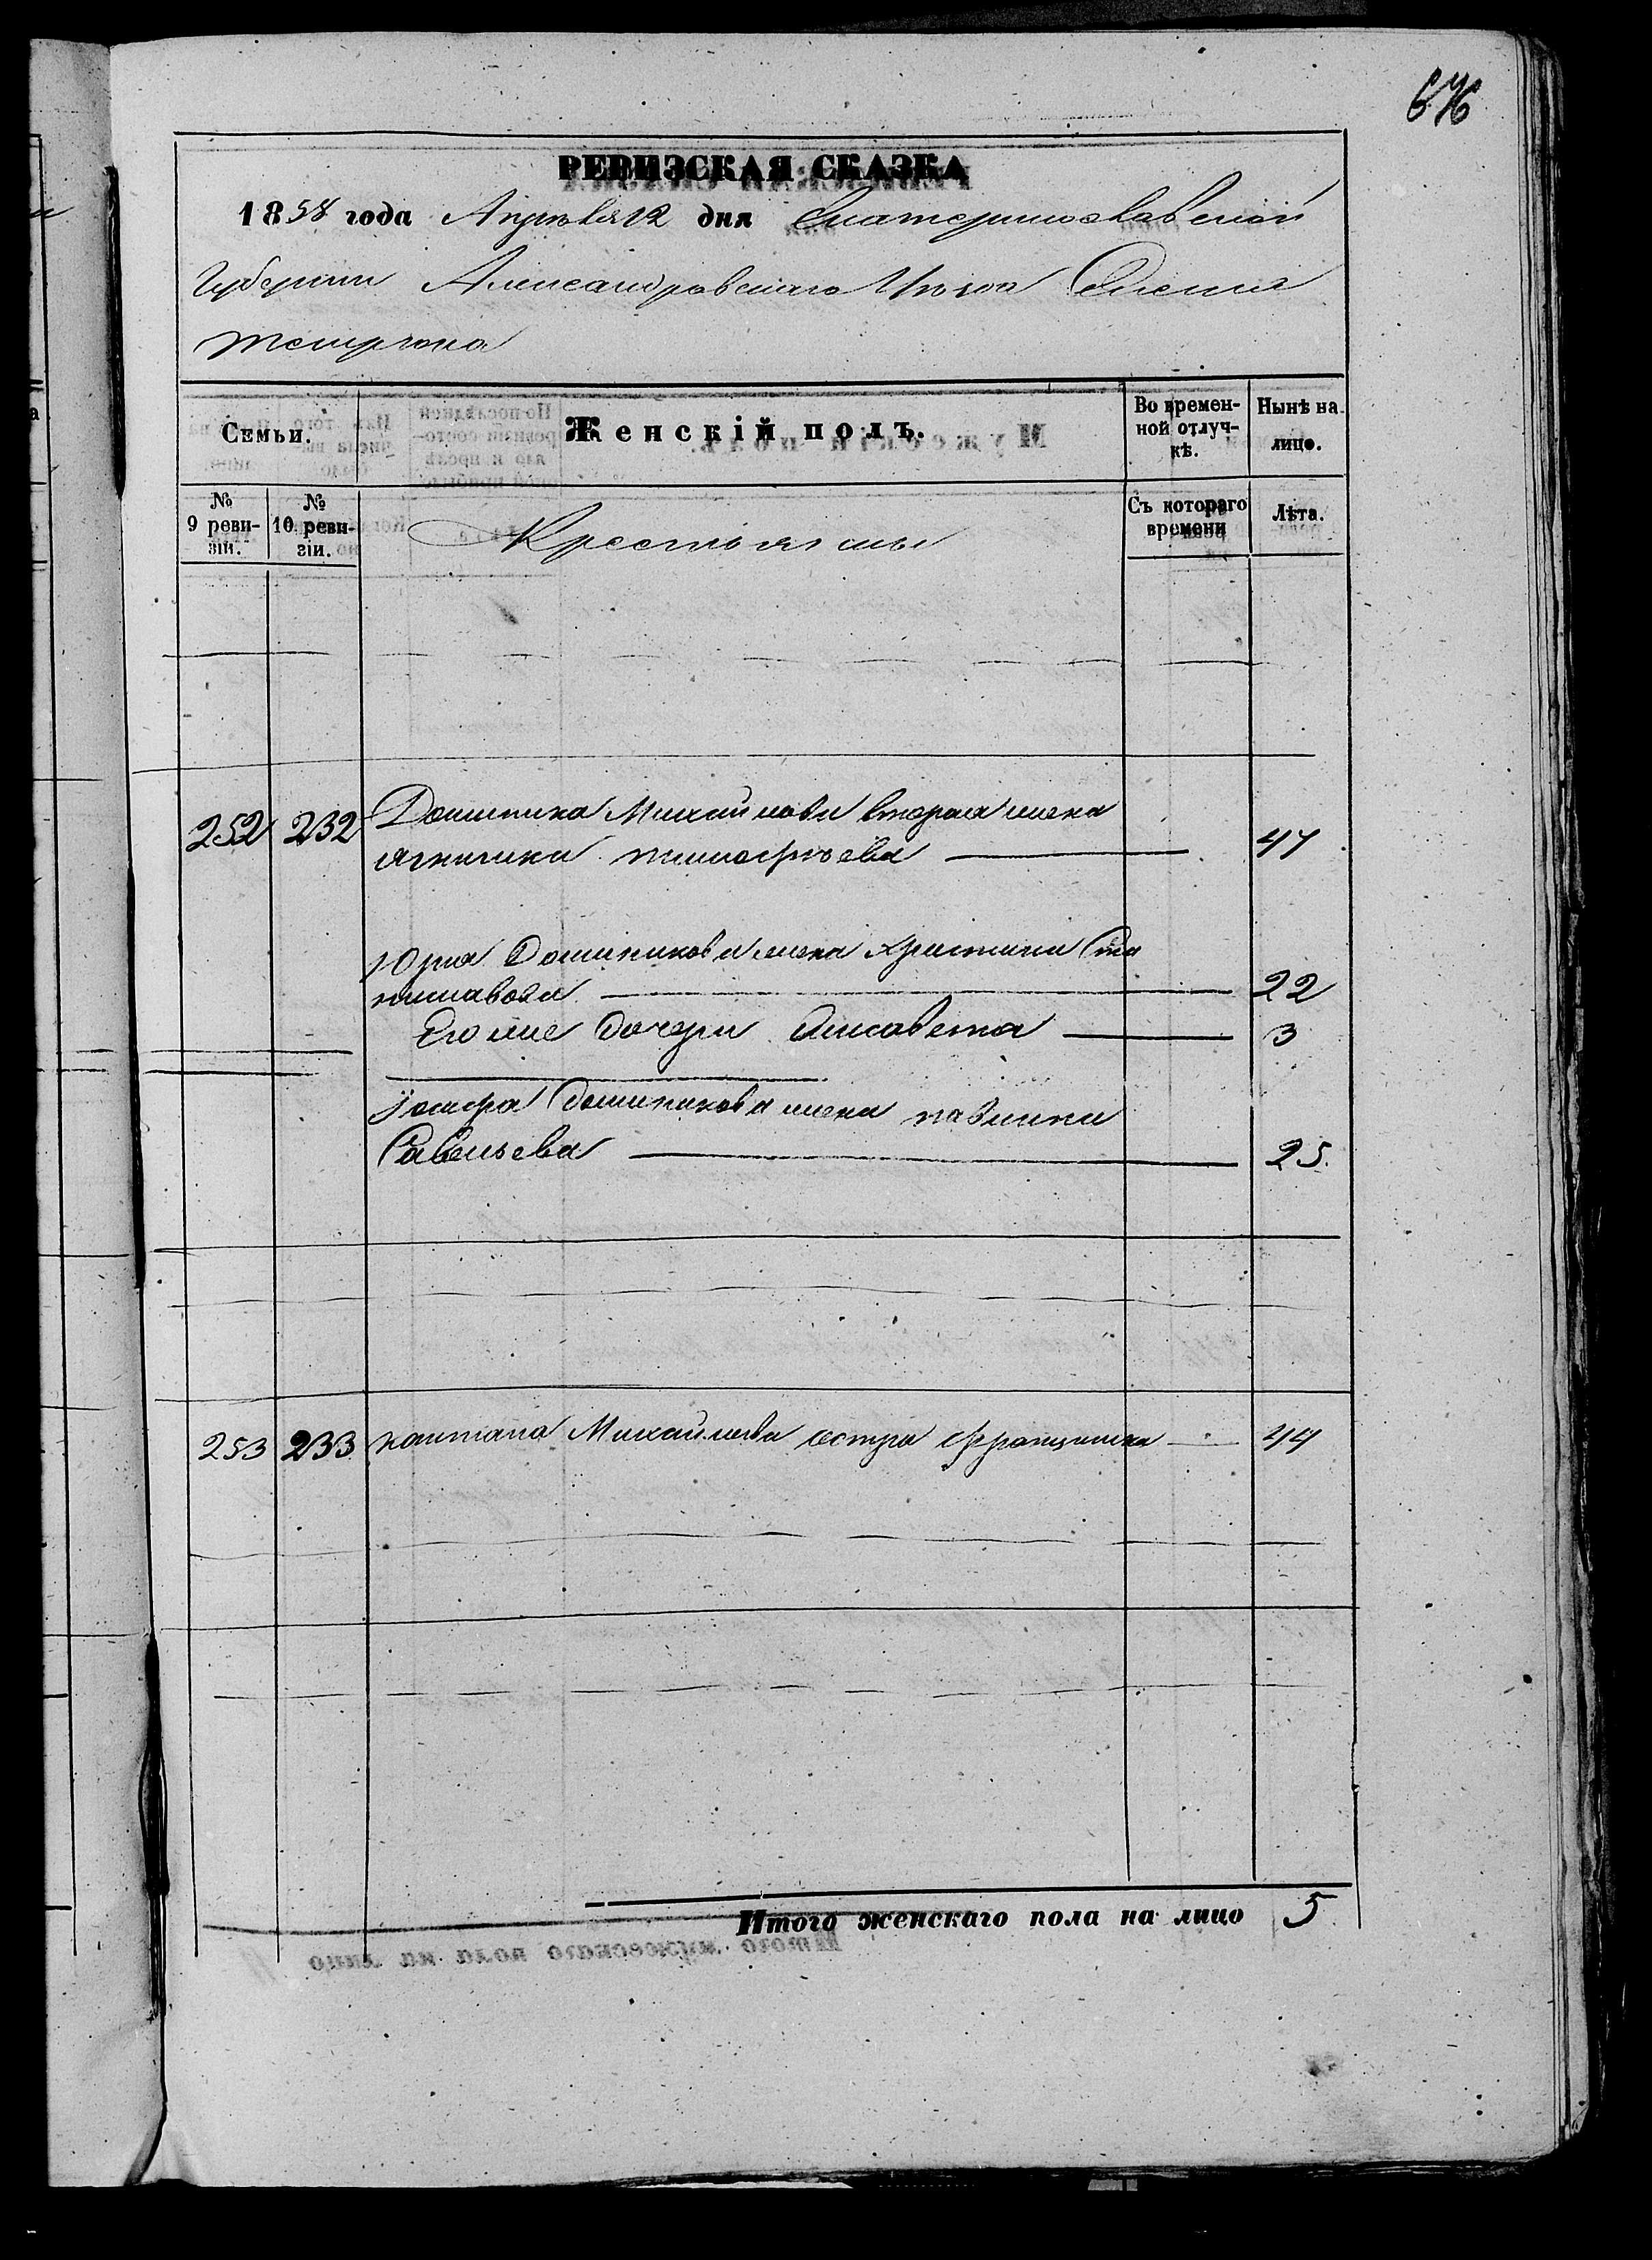 676
РЕВИЗСКАЯ СКАЗКА
1858 года Апреля 12 дня Екатеринославской
Губернии Александровскаго Уезда Селения
Темрюка
Семьи.
Женскій полъ.
Во времен-
ной отлуч-
кѣ.
Нынѣ на
лицо.
№
9 реви-
зіи.
№
10 реви-
зіи.
Крестьяне
Съ котораго
времени
Лѣта.
252 232 Доминика Михайлова вторая жена
Тимофѣева 47
Юрия Доминикова жена Христина
22
Его же дочери Елисавета 3
Іосифа Доминикова жена Павлина
Савельева 25
253 233 Каитана Михайлова сестра Францишка 44
Итого женскаго пола на лицо 5